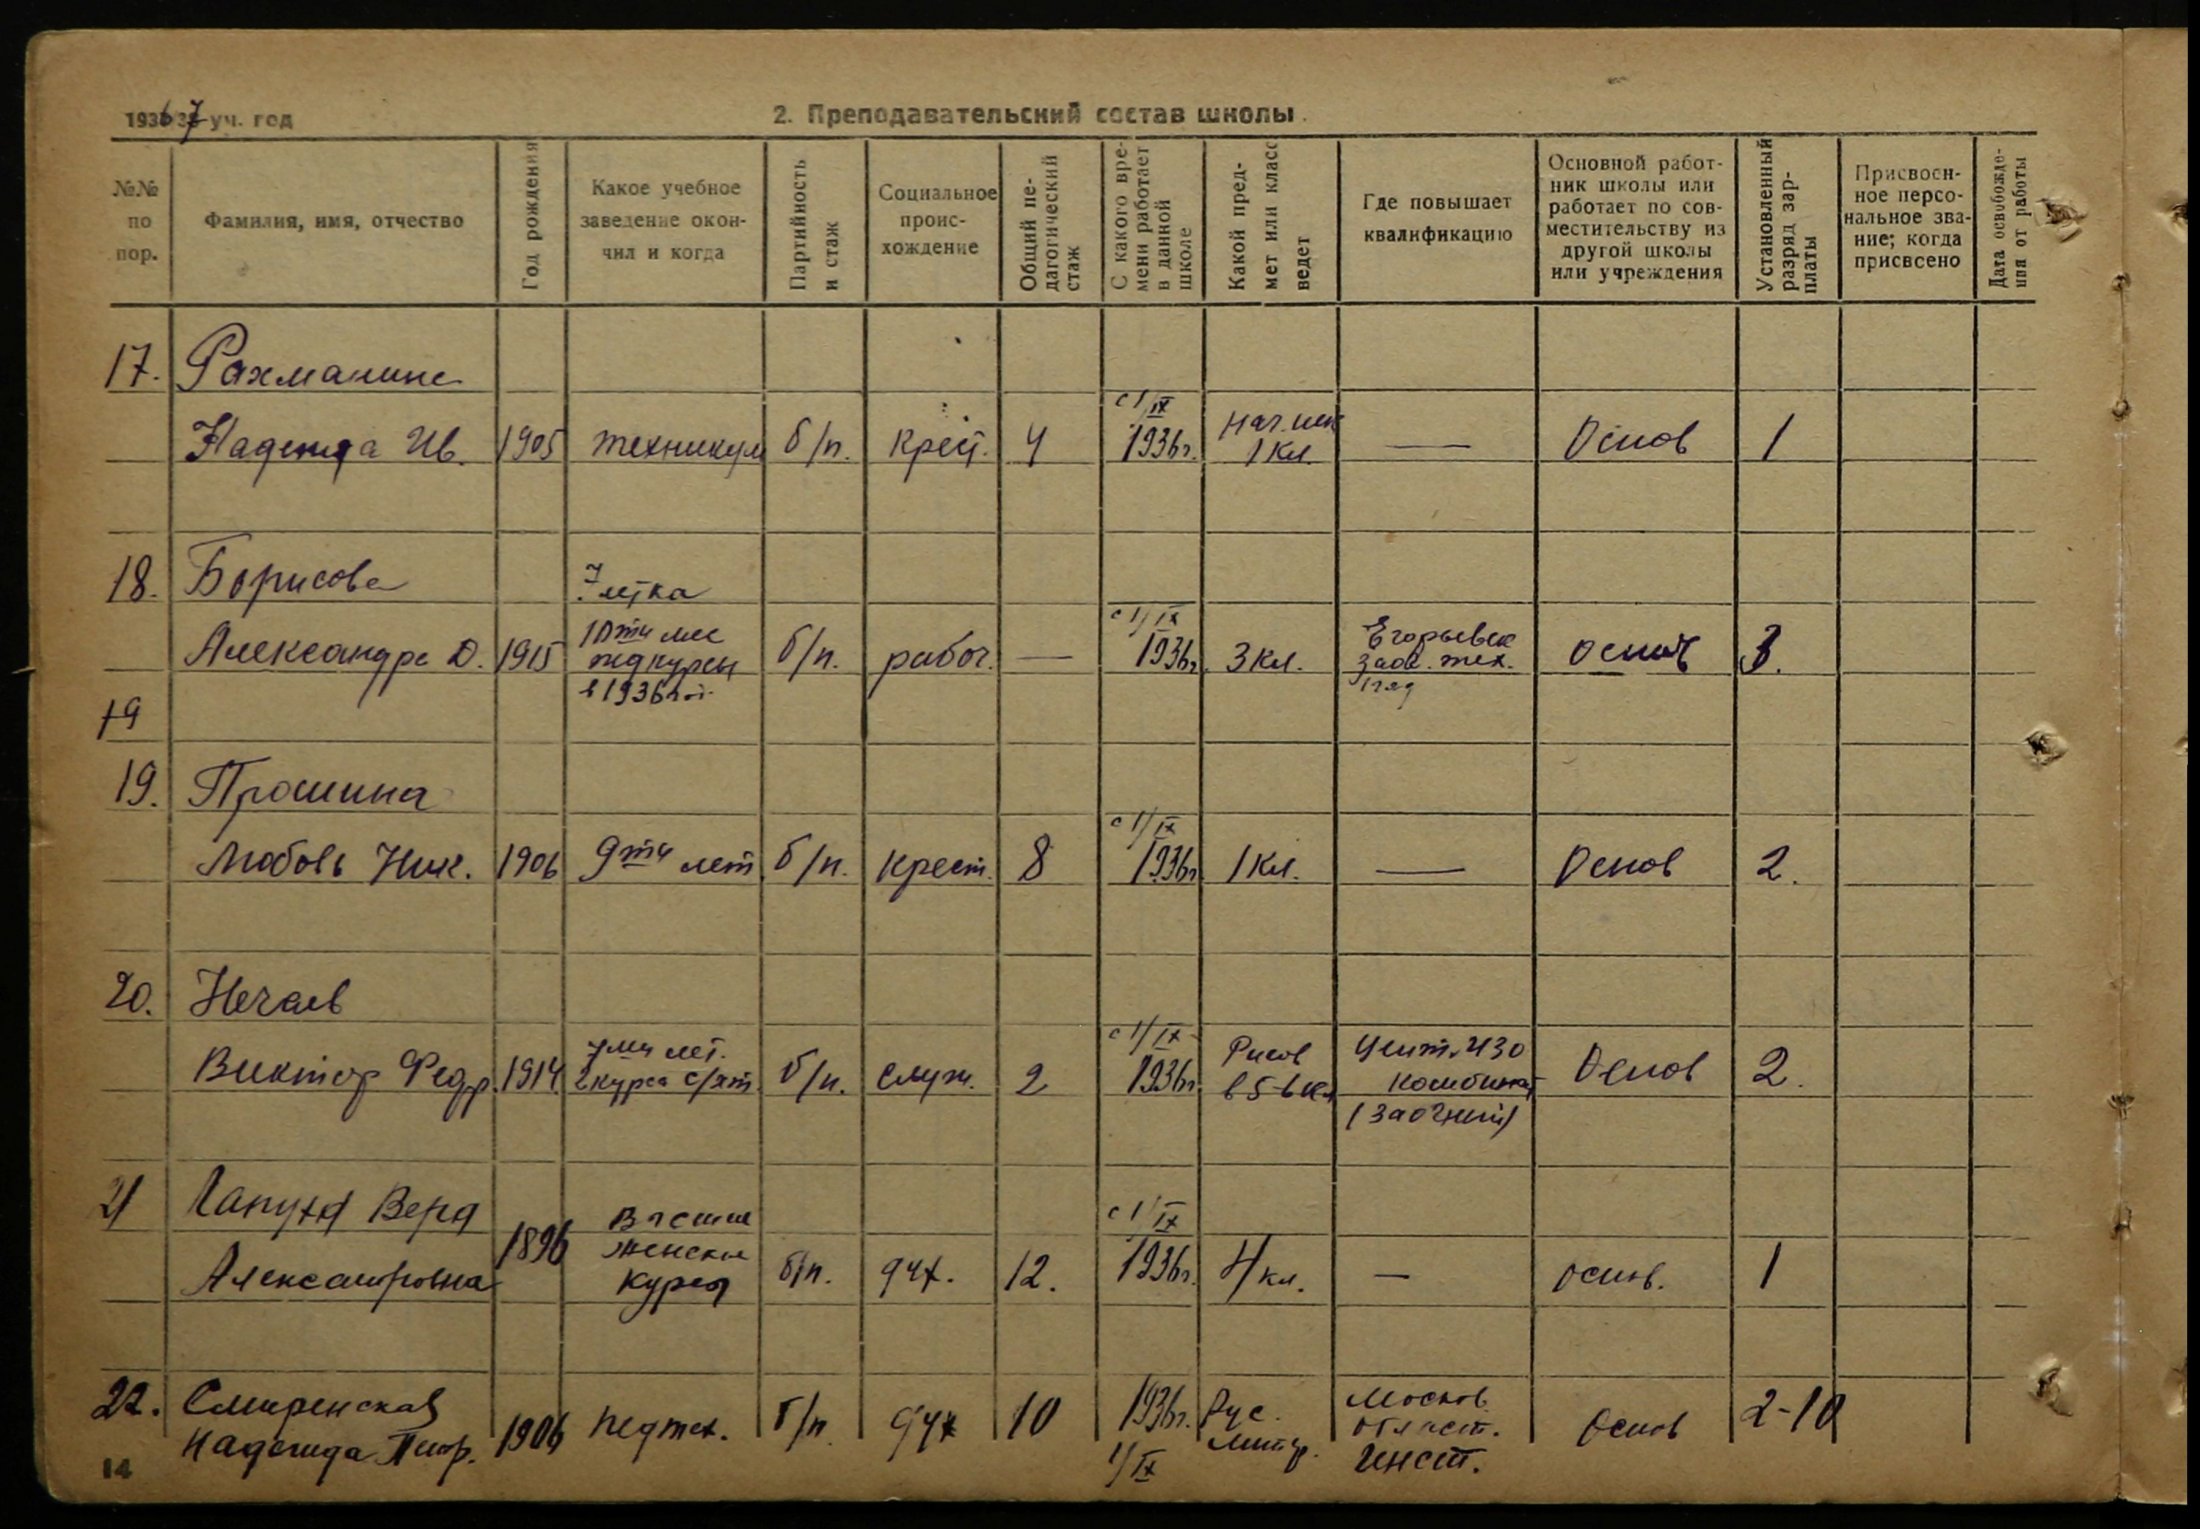 1936/37 уч. год
2. Преподавательский состав школы.
№№ по пор.
Фамилия, имя, отчество
Год рождения
Какое учебное заведение окончил и когда
Партийность и стаж
Социальное происхождение
Общий педагогический стаж
С какого времени работает в данной школе
Какой предмет или класс ведет
Где повышает квалификацию
Основной работник школы или работает по совместительству из другой школы или учреждения
Установленный разряд зарплаты
Присвоенное персональное звание; когда присвоено
Дата освобождения от работы
17. Рахманина
с 1/IX
Надежда Ив. 1905 техникум б/п. крест. 4 1936г. Нач. шк 1 кл. — Основ 1
18. Борисова
7 летка
Александра Д. 1915 10ти мес педкурсы в 1936 б/п. рабоч. — с 1/IX 1936г. 3 кл. Егорьевск заоч. тех. Основ 3.
19
19. Прошина
с 1/IX
Любовь Ник. 1906 9ти лет б/п. крест. 8 1936г. 1 кл. — Основ 2.
20. Нечаев
с 1/IX
Виктор Федр. 1914. 7ми лет. 2 курса б/п. служ. 2 1936г. Рисов в 5-6 кл Цент. ИЗО комбинат (заочный) Основ 2.
21 Лапуха Вера
с 1/IX
Александровна 1896 Высшие женские курсы б/п. дух. 12. 1936г. 4 кл. — основ. 1
22. Смиренская
Надежда Петр. 1906 педтех. б/п. дух 10 1936г. 1/IX Рус. литер. Москов. област. инст. Основ 2-10
14